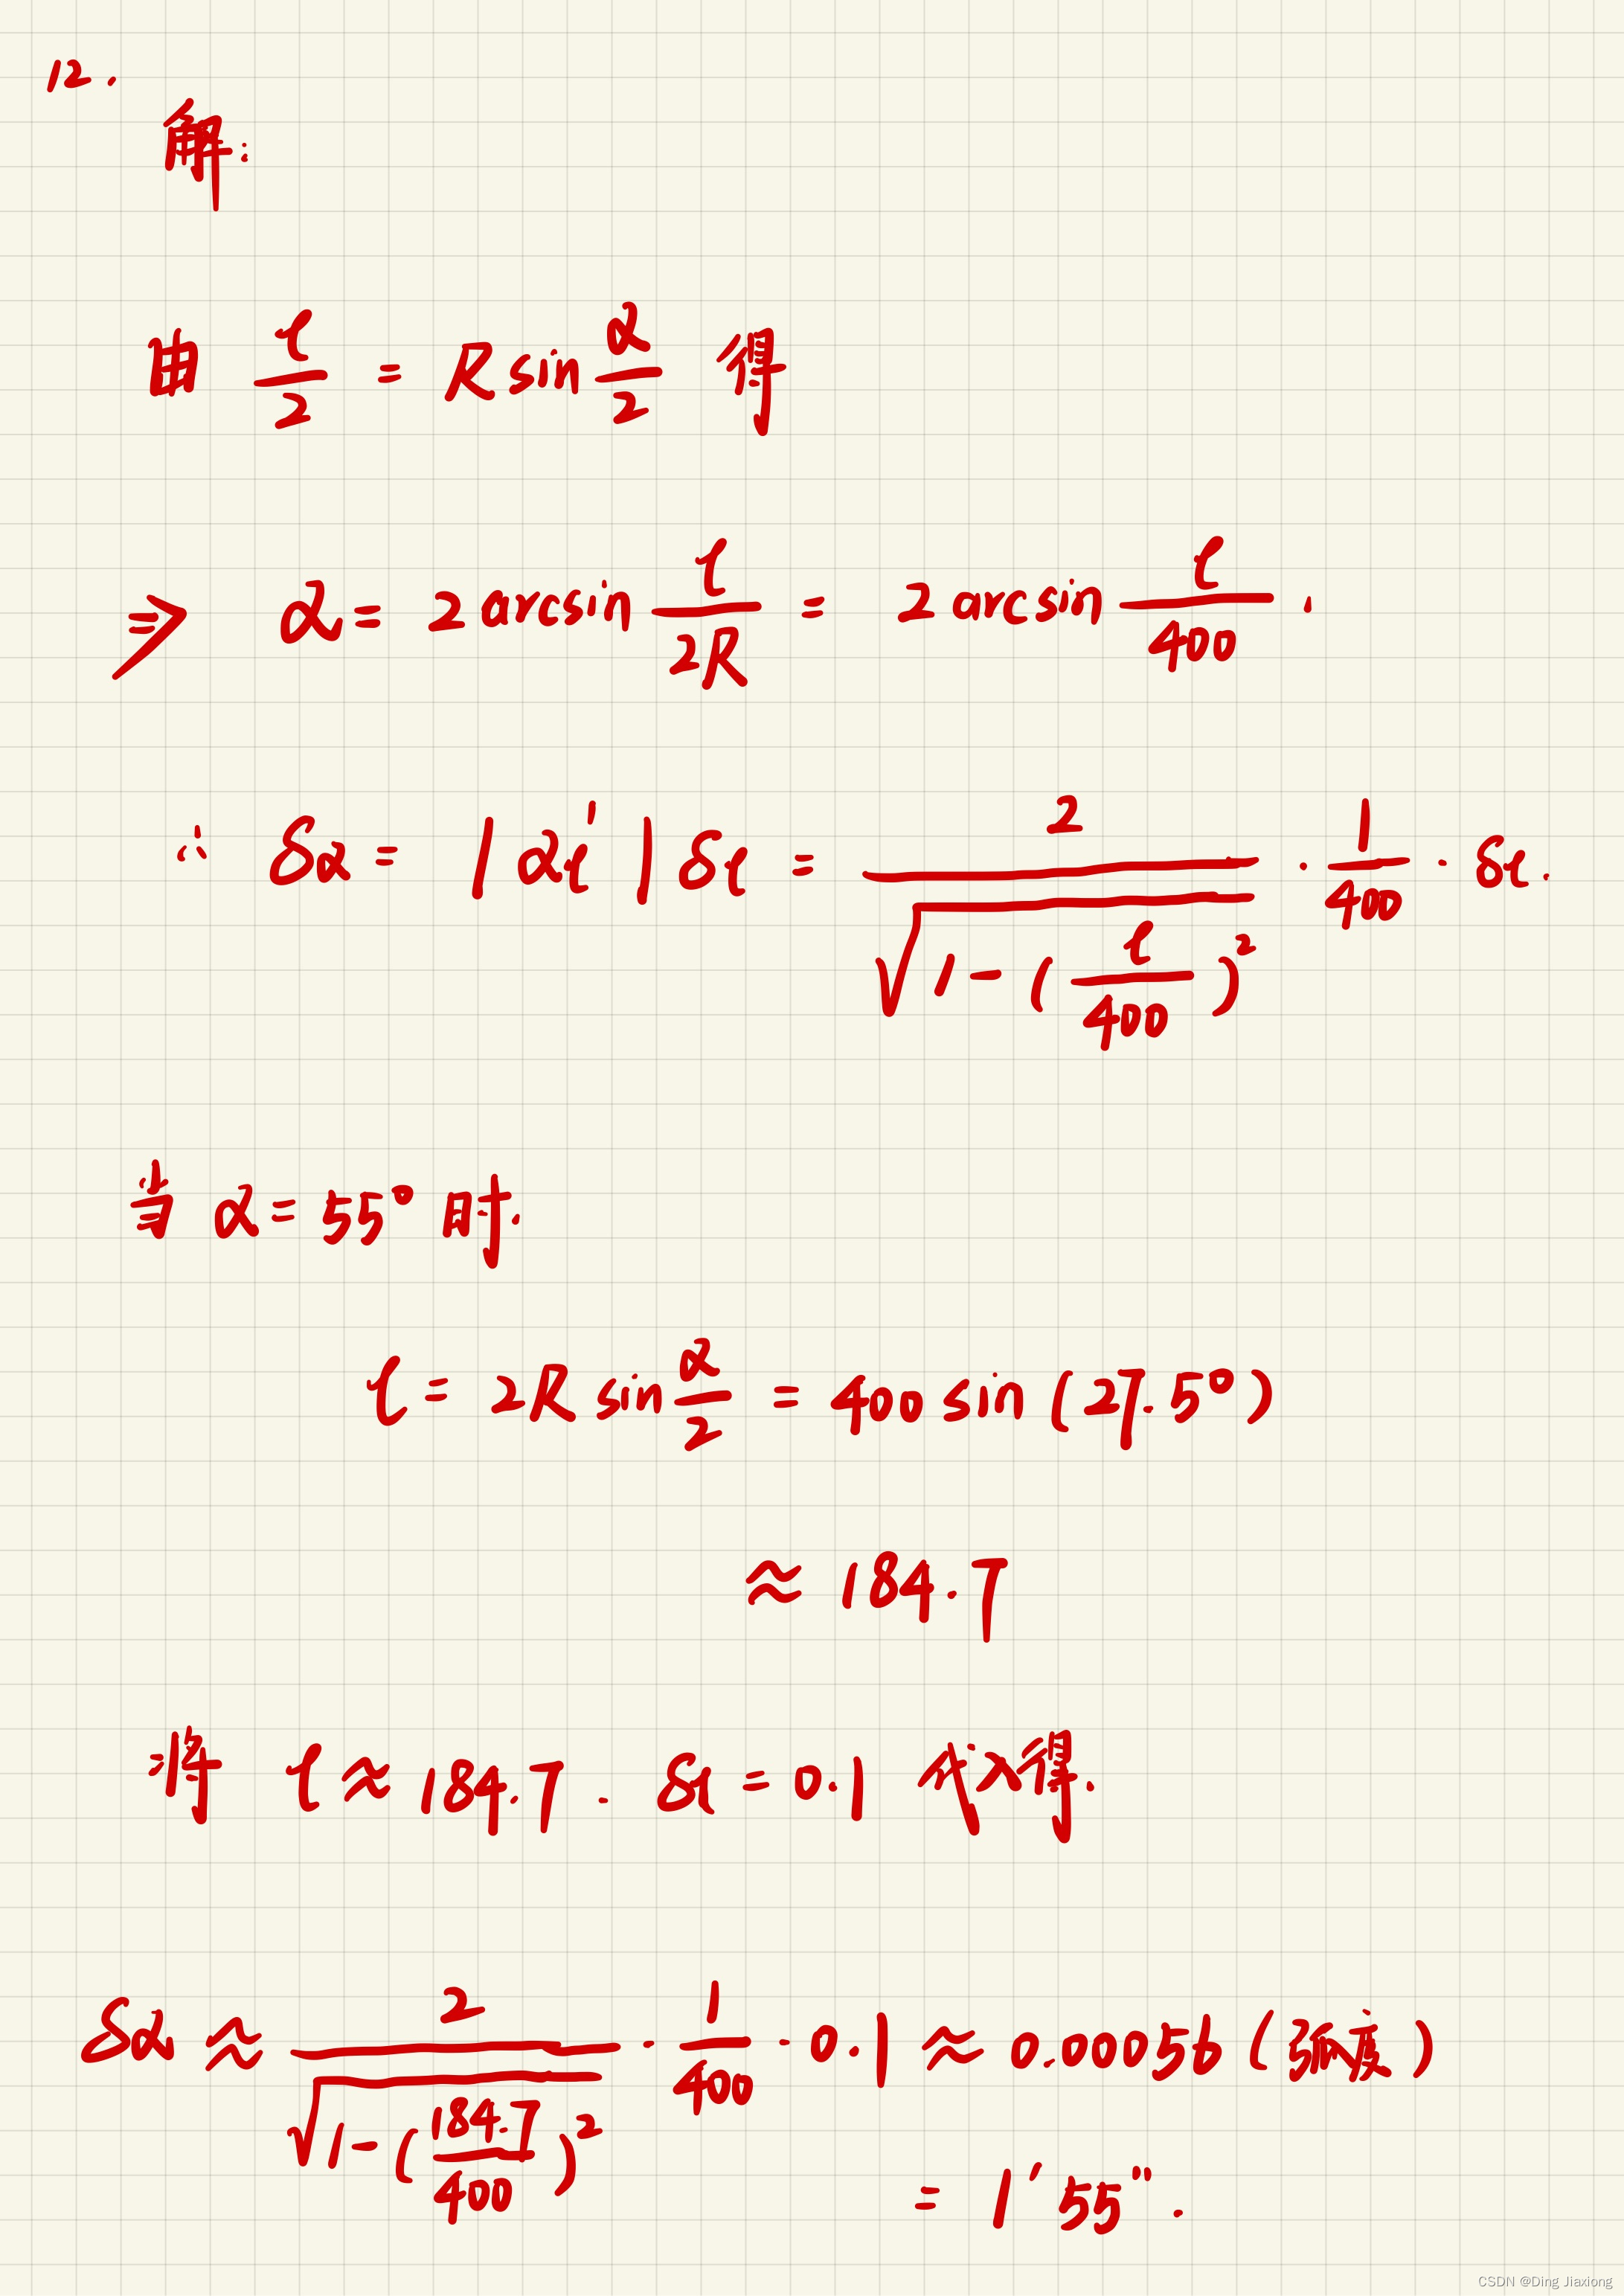 12.
解:
由 l/2 = R sin α/2 得
⇒ α = 2 arcsin l/2R = 2 arcsin l/400 .
∴ δα = |αl'| δl = 2/√(1-(l/400)²) · 1/400 · δl.
当 α = 55° 时.
l = 2R sin α/2 = 400 sin (27.5°)
≈ 184.7
将 l ≈ 184.7. δl = 0.1 代入得.
δα ≈ 2/√(1-(184.7/400)²) · 1/400 · 0.1 ≈ 0.00056 (弧度)
= 1′55″.
CSDN @Ding Jiaxiong